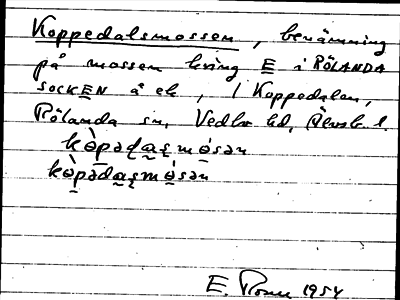 Koppedalsmossen, benämning
på mossen kring E i RÖLANDA
SOCKEN å ek, / Koppedalen,
Rölanda sn, Vedbo hd, Älvsb. l.
kòpədaʂmósən
kòpədaʂmósən
E. 1954